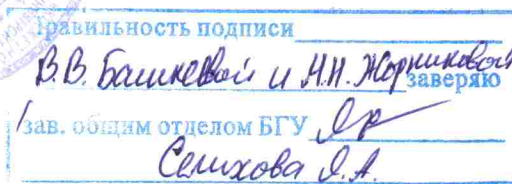 Правильность подписи
В.В. Башкеевой и Н.Н. Жорниковой заверяю
зав. общим отделом БГУ
Селихова Л.А.